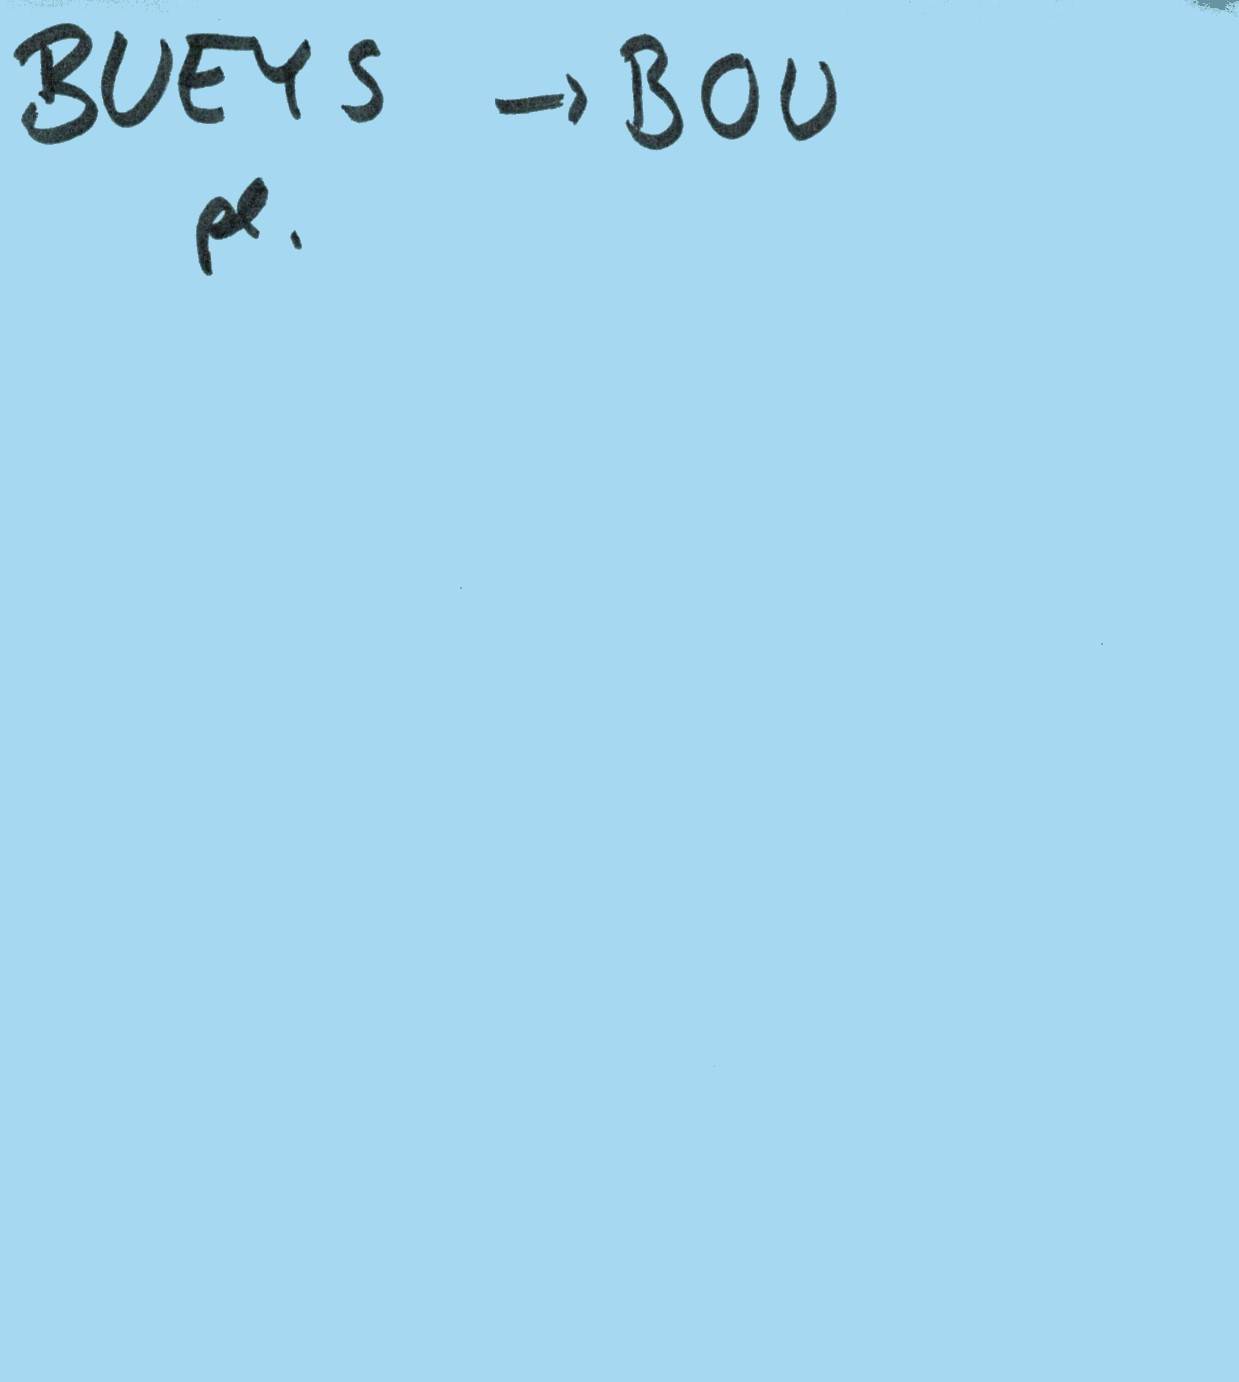 BUEYS → BOU
pl.